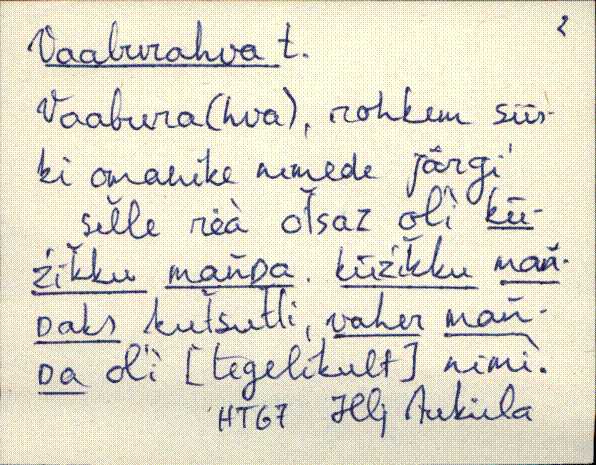 2
Vaaburahva t.
Vaabura(hva), rohkem siis-
ki omanike nimede järgi
selle rēà otsaz olì kū-
źikku mańDa. kūzikku mań-
Daks kutsutti, vaher mań-
Da olì [tegelikult] nimì.
HT67